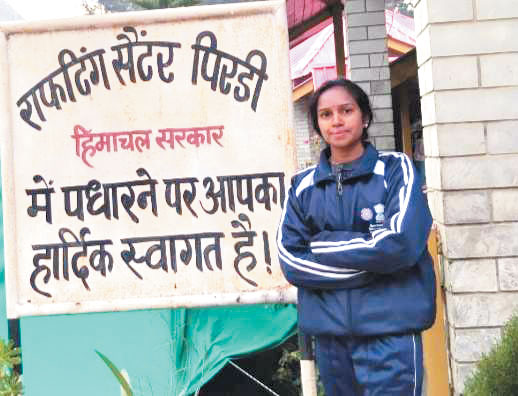 राफ्टिंग सैंटर पिरडी
हिमाचल सरकार
में पधारने पर आपका
हार्दिक स्वागत है!